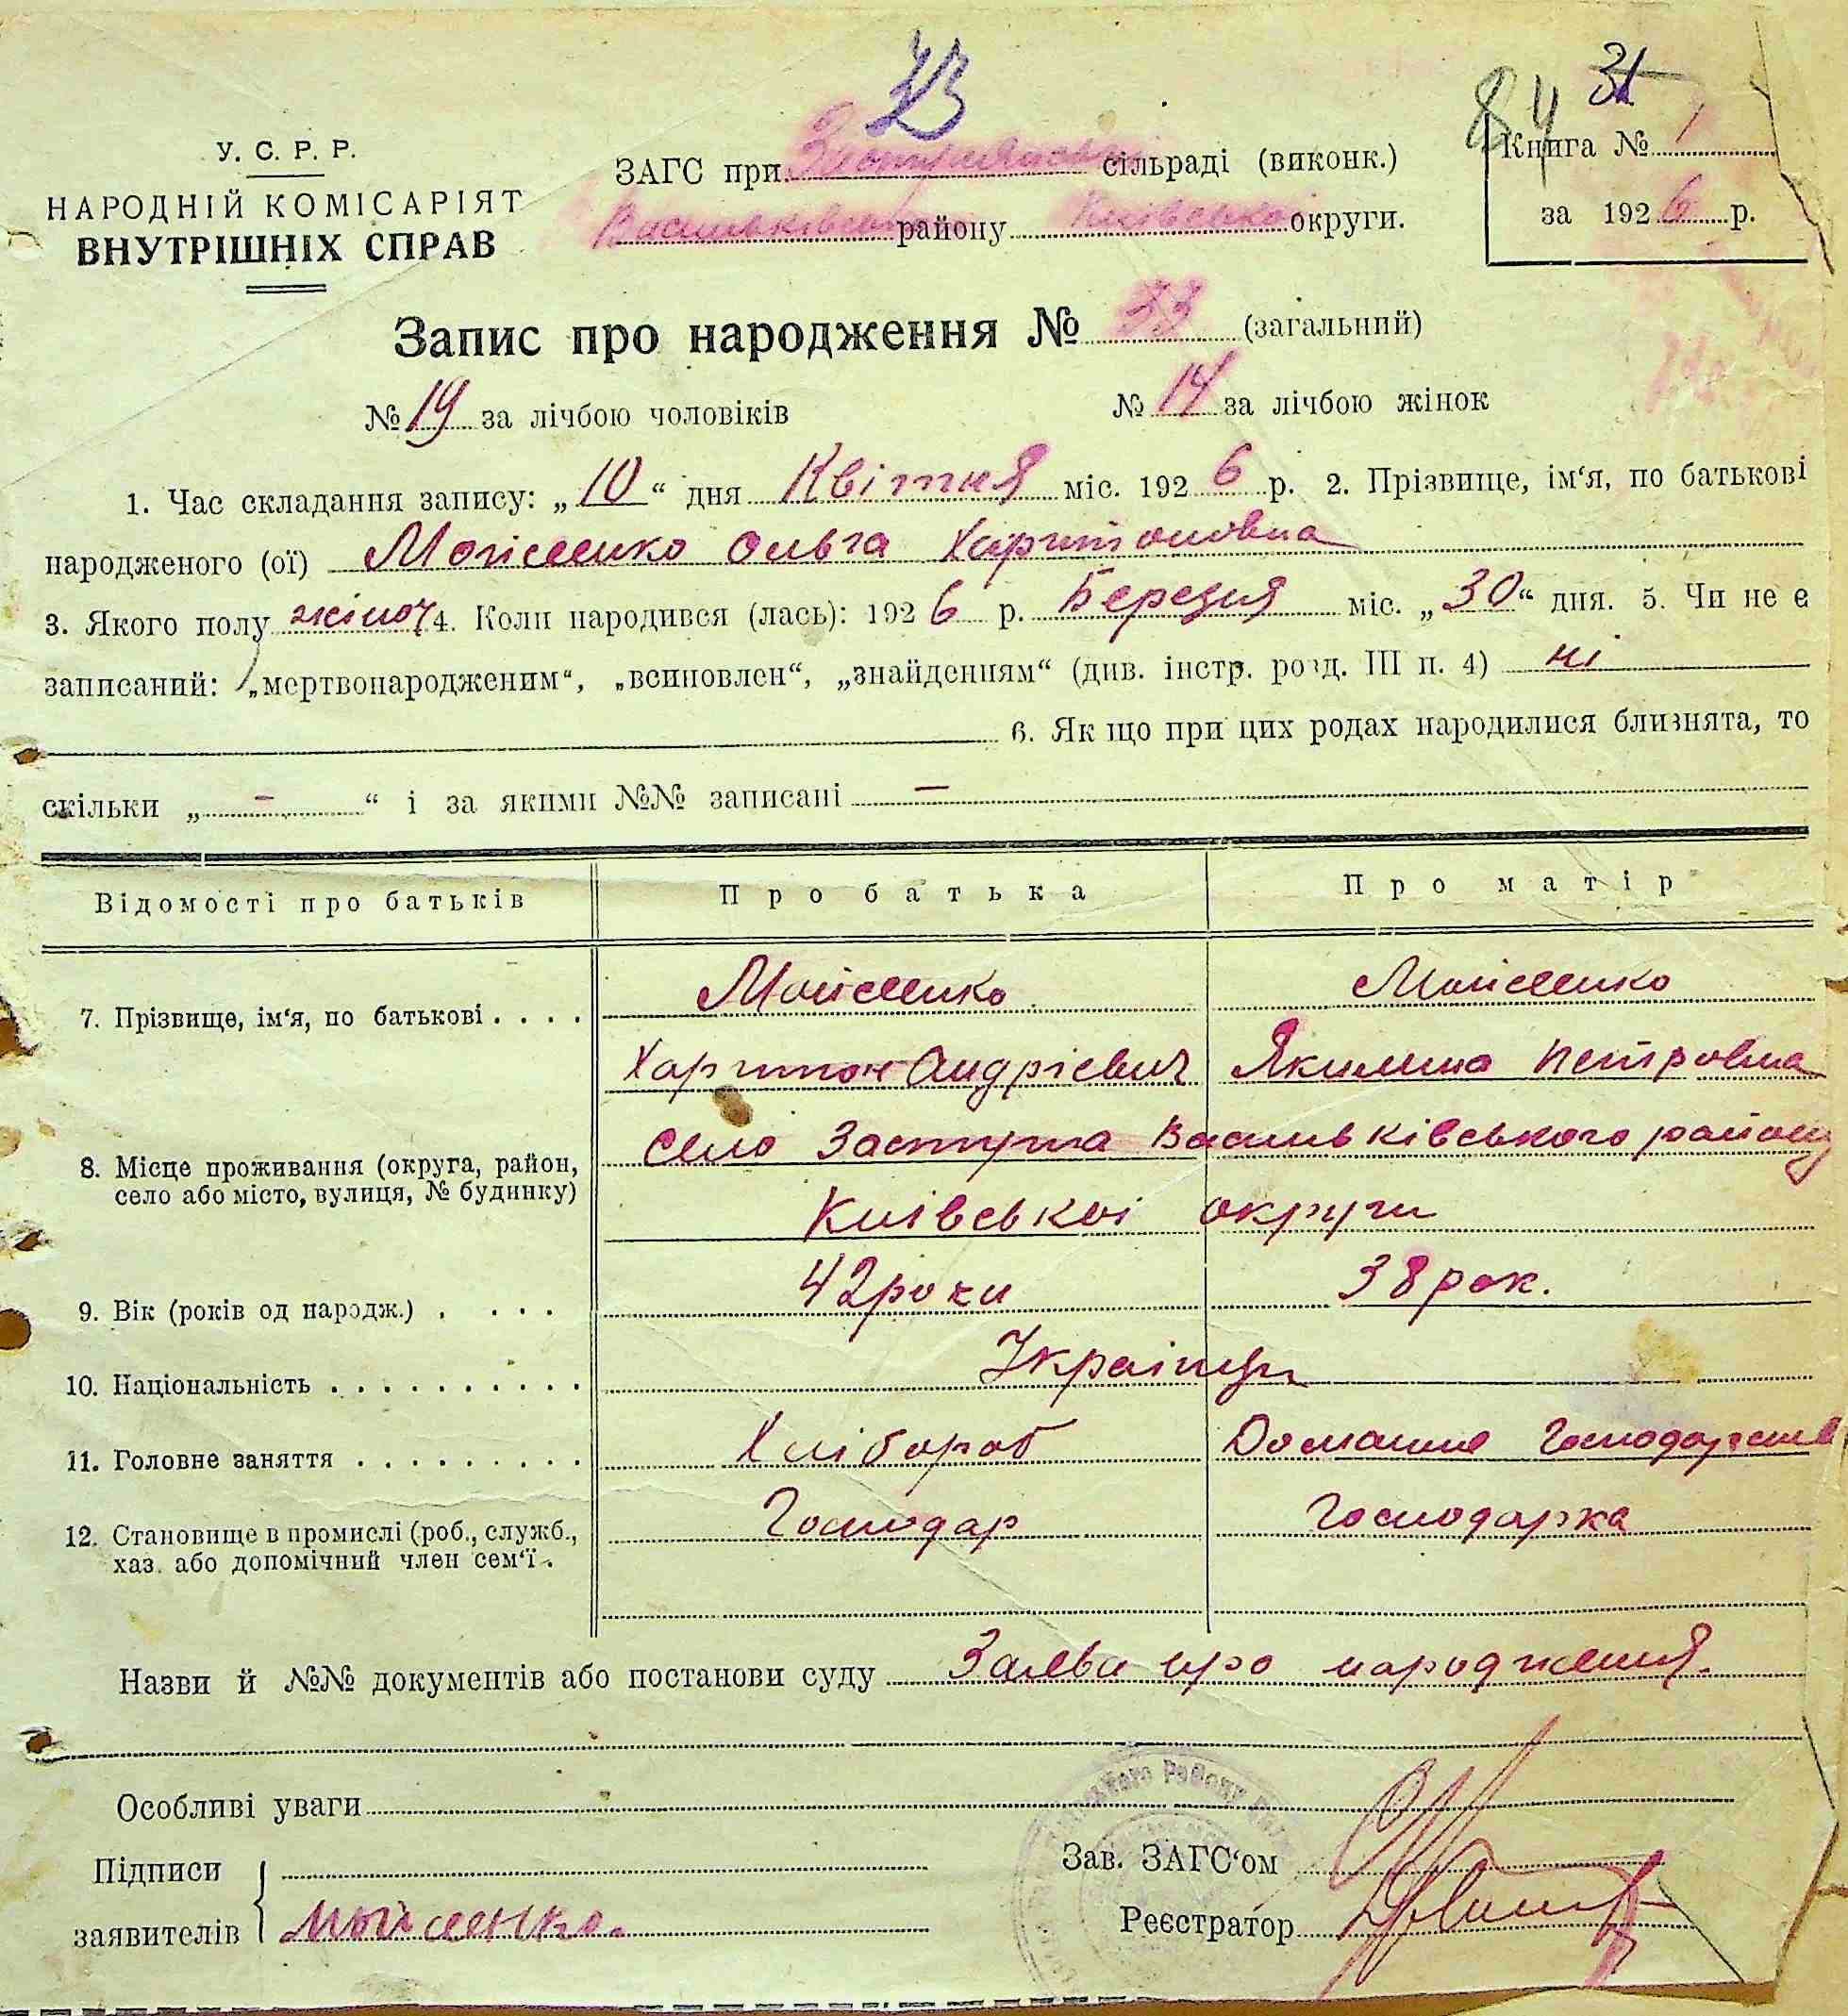 33
84 31
У. С. Р. Р.
НАРОДНІЙ КОМІСАРІЯТ
ВНУТРІШНІХ СПРАВ
ЗАГС при сільраді (виконк.)
Васильківськ району Київської округи.
Книга № 1
за 1926 р.
Запис про народження № 33 (загальний)
№ 19 за лічбою чоловіків № 14 за лічбою жінок
1. Час складання запису: „10“ дня Квітня міс. 1926 р. 2. Прізвище, ім‘я, по батькові
народженого (ої) Моісеенко Ольга Харитоновна
3. Якого полу жіноч 4. Коли народився (лась): 1926 р. Березня міс. „30“ дня. 5. Чи не є
записаний: „мертвонародженим“, „всиновлен“, „знайденням“ (див. інстр. розд. III п. 4) ні
6. Якщо при цих родах народилися близнята, то
скільки „ – “ і за якими №№ записані –
Відомості про батьків Про батька Про матір
7. Прізвище, ім‘я, по батькові . . . . Моисеенко Моисеенко
Харитон Андрієвич Якилина Петровна
8. Місце проживання (округа, район, село Застугна Васильківського району
село або місто, вулиця, № будинку) Київської округи
9. Вік (років од народж.) . . . . 42 роки 38 рок.
10. Національність . . . . . . . . . . Українци
11. Головне заняття . . . . . . . . . . Хлібороб Домашне Господарств
12. Становище в промислі (роб., служб., Господар Господарка
хаз. або допомічний член сем‘ї .
Назви й №№ документів або постанови суду Заява про народження.
Особливі уваги
Підписи Зав. ЗАГС‘ом
заявителів Мойсеенко. Реєстратор